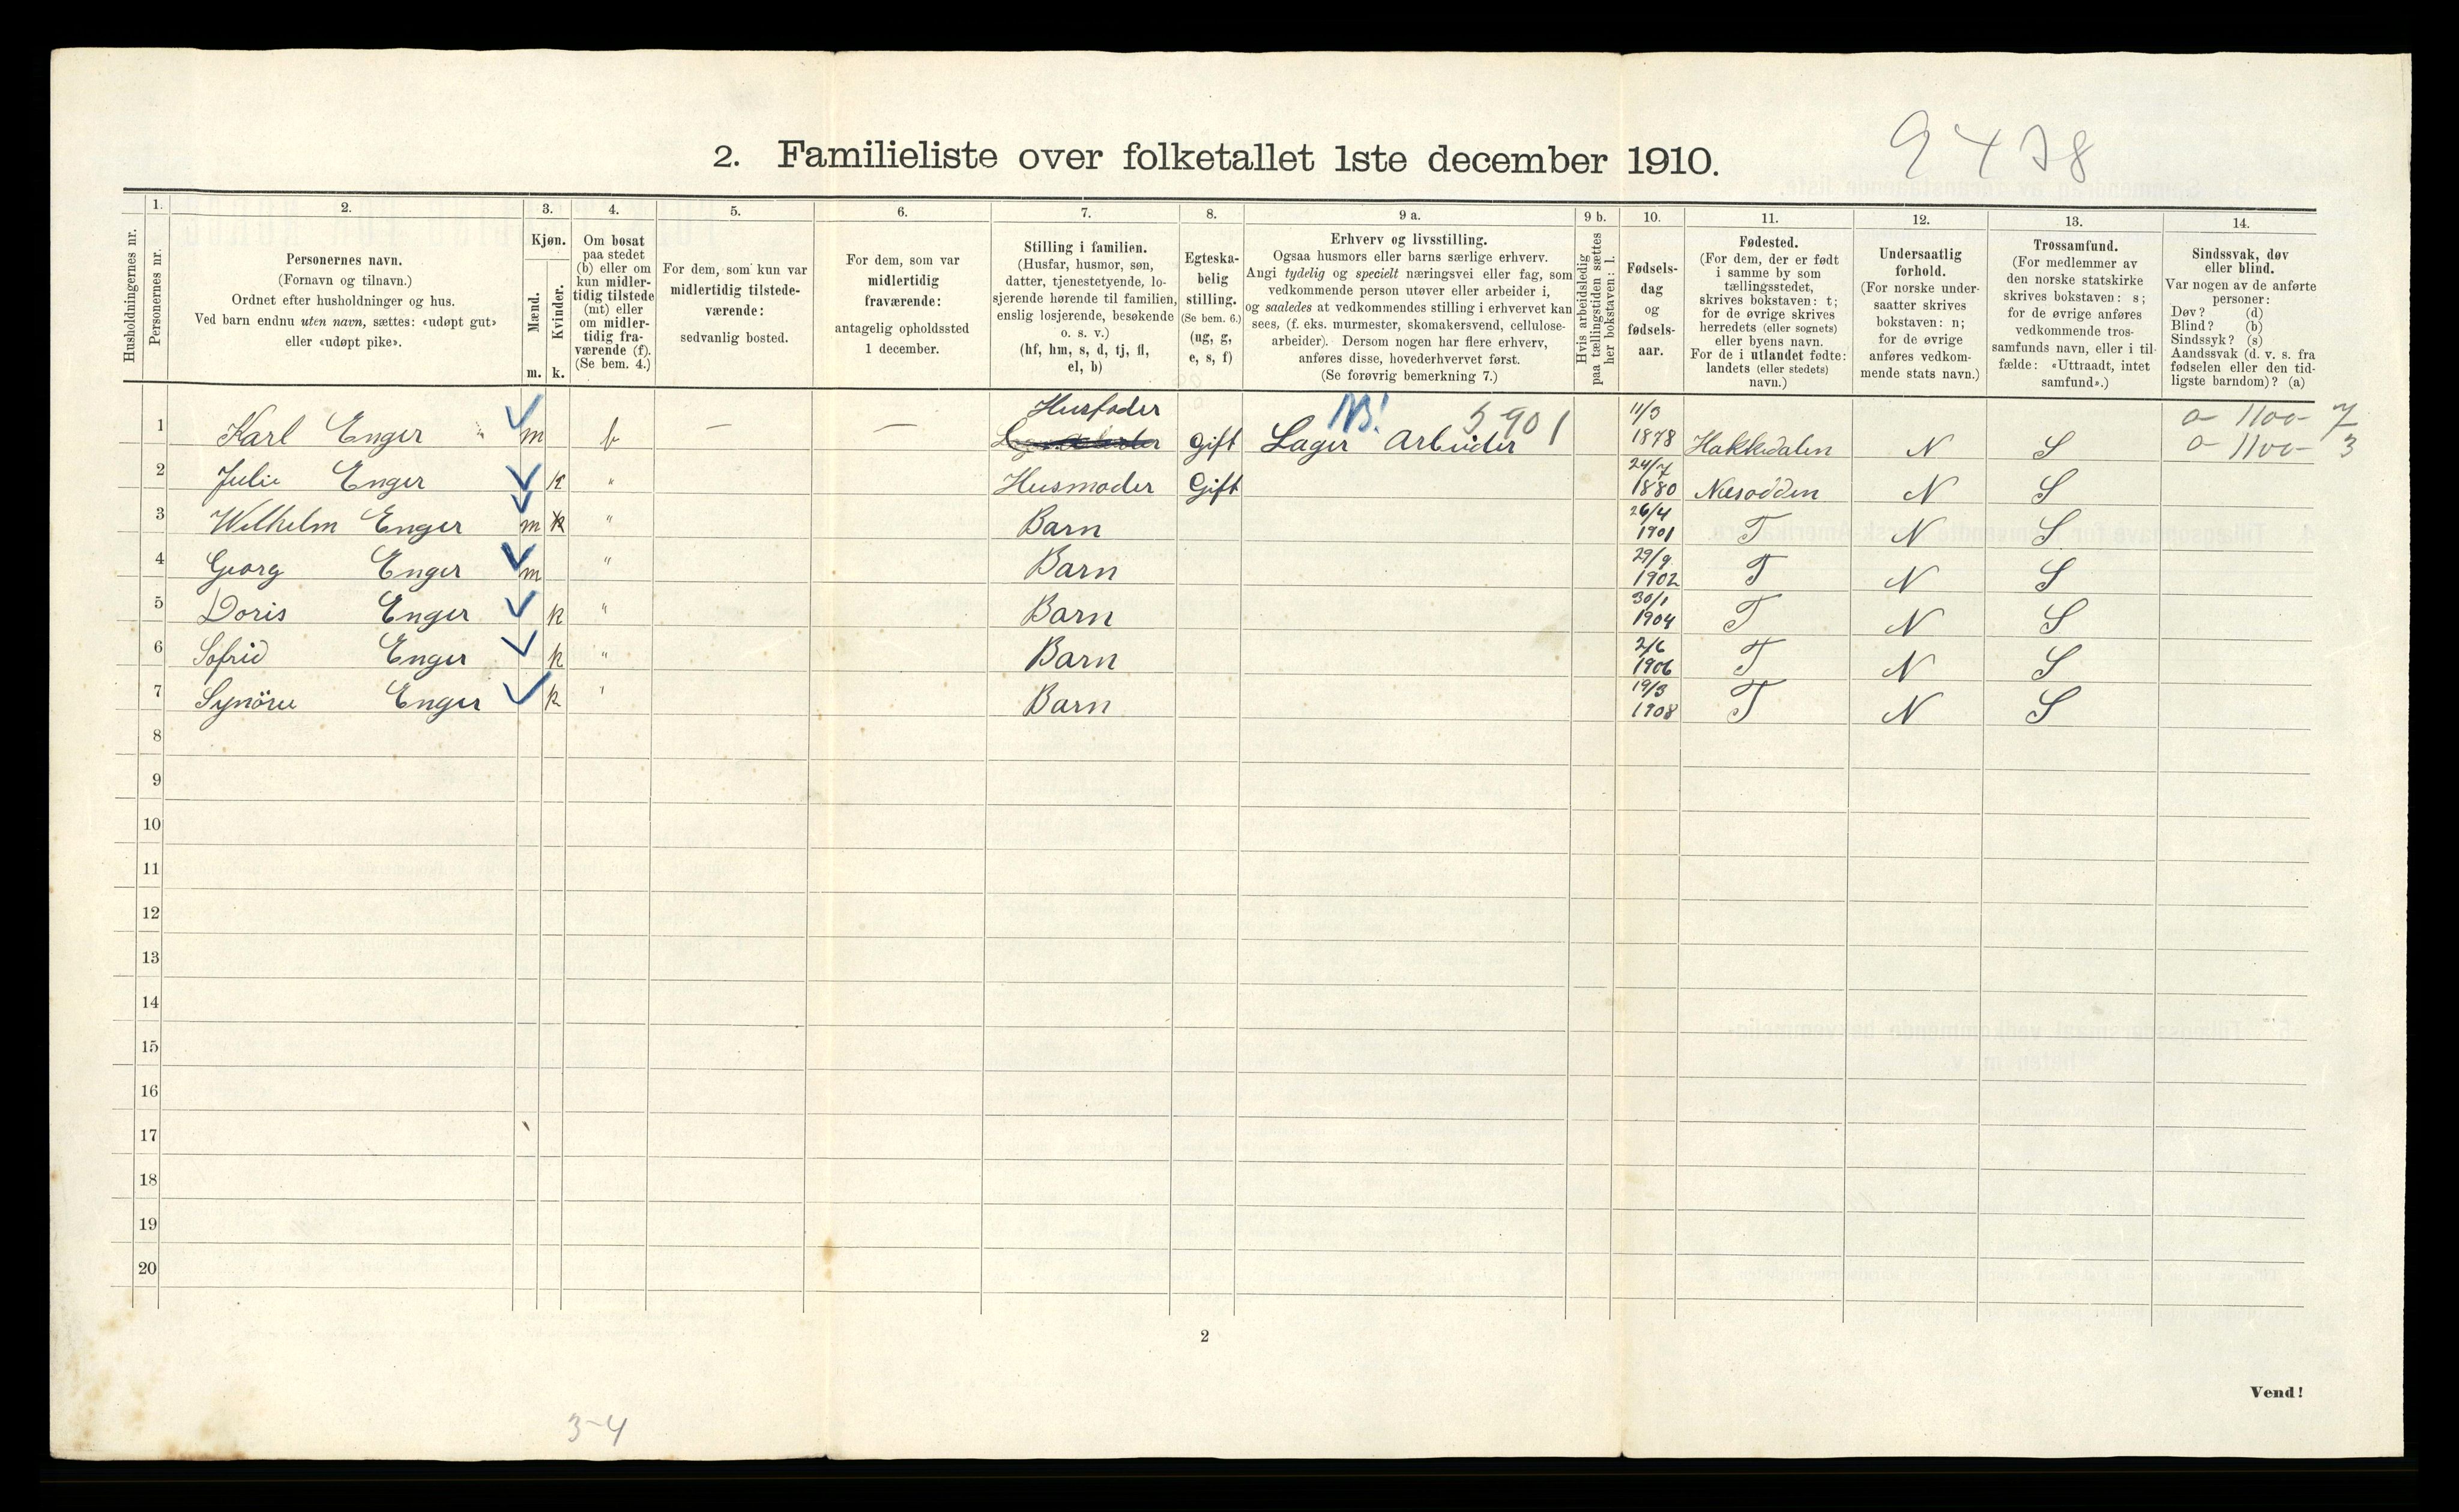 9478
2. Familieliste over folketallet 1ste december 1910.
Husholdningernes nr.
1. Personernes nr.
2. Personernes navn.
(Fornavn og tilnavn.)
Ordnet efter husholdninger og hus.
Ved barn endnu uten navn, sættes: «udøpt gut»
eller «udøpt pike».
3. Kjøn.
Mænd. m.
Kvinder. k.
4. Om bosat
paa stedet
(b) eller om
kun midler-
tidig tilstede
(mt) eller
om midler-
tidig fra-
værende (f).
(Se bem. 4.)
5. For dem, som kun var
midlertidig tilstede-
værende:
sedvanlig bosted.
6. For dem, som var
midlertidig
fraværende:
antagelig opholdssted
1 december.
7. Stilling i familien.
(Husfar, husmor, søn,
datter, tjenestetyende, lo-
sjerende hørende til familien,
enslig losjerende, besøkende
o. s. v.)
(hf, hm, s, d, tj, fl,
el, b)
8. Egteska-
belig
stilling.
(Se bem. 6.)
(ug, g,
e, s, f)
9 a. Erhverv og livsstilling.
Ogsaa husmors eller barns særlige erhverv.
Angi tydelig og specielt næringsvei eller fag, som
vedkommende person utøver eller arbeider i,
og saaledes at vedkommendes stilling i erhvervet kan
sees, (f. eks. murmester, skomakersvend, cellulose-
arbeider). Dersom nogen har flere erhverv,
anføres disse, hovederhvervet først.
(Se forøvrig bemerkning 7.)
9 b. Hvis arbeidsledig
paa tællingstiden sættes
her bokstaven: l.
10. Fødsels-
dag
og
fødsels-
aar.
11. Fødested.
(For dem, der er født
i samme by som
tællingsstedet,
skrives bokstaven: t;
for de øvrige skrives
herredets (eller sognets)
eller byens navn.
For de i utlandet fødte:
landets (eller stedets)
navn.)
12. Undersaatlig
forhold.
(For norske under-
saatter skrives
bokstaven: n;
for de øvrige
anføres vedkom-
mende stats navn.)
13. Trossamfund.
(For medlemmer av
den norske statskirke
skrives bokstaven: s;
for de øvrige anføres
vedkommende tros-
samfunds navn, eller i til-
fælde: «Uttraadt, intet
samfund».)
14. Sindssvak, døv
eller blind.
Var nogen av de anførte
personer:
Døv? (d)
Blind? (b)
Sindssyk? (s)
Aandssvak (d. v. s. fra
fødselen eller den tid-
ligste barndom)? (a)
Husfader NB! 5901 11/3 0- 1100- 7
1 Karl Enger m b — — Gift Lager Arbeider 1878 Hakkedalen N S 0- 1100- 3
2 Julie Enger k " Husmoder Gift 24/7 1880 Næsodden N S
3 Wilhelm Enger m k " Barn 26/4 1901 T N S
4 Georg Enger m " Barn 29/9 1902 T N S
5 Doris Enger k " Barn 30/1 1904 T N S
6 Sofrid Enger k " Barn 2/6 1906 T N S
7 Synöve Enger k " Barn 19/3 1908 T N S
8
9
10
11
12
13
14
15
16
17
18
19
20
2
Vend!
3-4